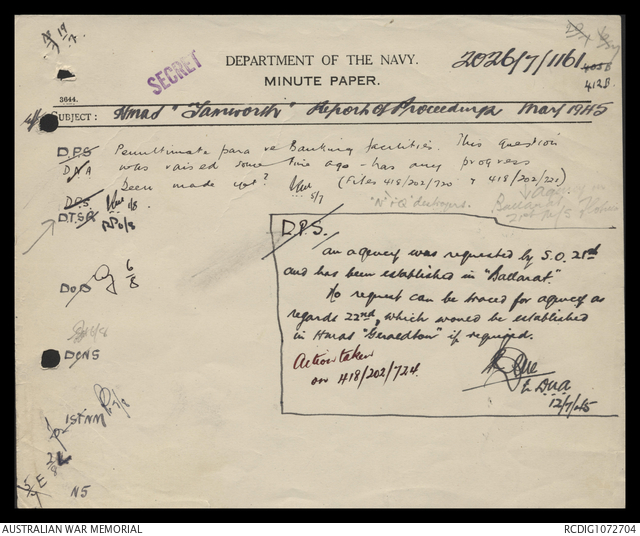 19/7
SECRET
DEPARTMENT OF THE NAVY.
MINUTE PAPER.
2026/7/1161
405B
412B
3644.
SUBJECT: HMAS "Tamworth" Report of Proceedings May 1945
D.P.S. Penultimate para re Banking facilities. This question
DNA was raised some time ago - has any progress
been made yet? 5/7 (Files 418/202/720 & 418/202/721)
D.P.S. 1/8
"N" & "Q" destroyers.
agency in
Ballarat
21st M/S Flotilla
D.T.S.R 6/8
D.P.S.
an agency was requested by S.O. 21st
and has been established in "Ballarat".
No request can be traced for agency as
regards 22nd, which would be established
in HMAS "Geraldton" if required.
Action taken
on 418/202/724.
DNA
12/7/45
DoO 6/8
DCNS
1STNM
2/8
5/7
NS
AUSTRALIAN WAR MEMORIAL
RCDIG1072704